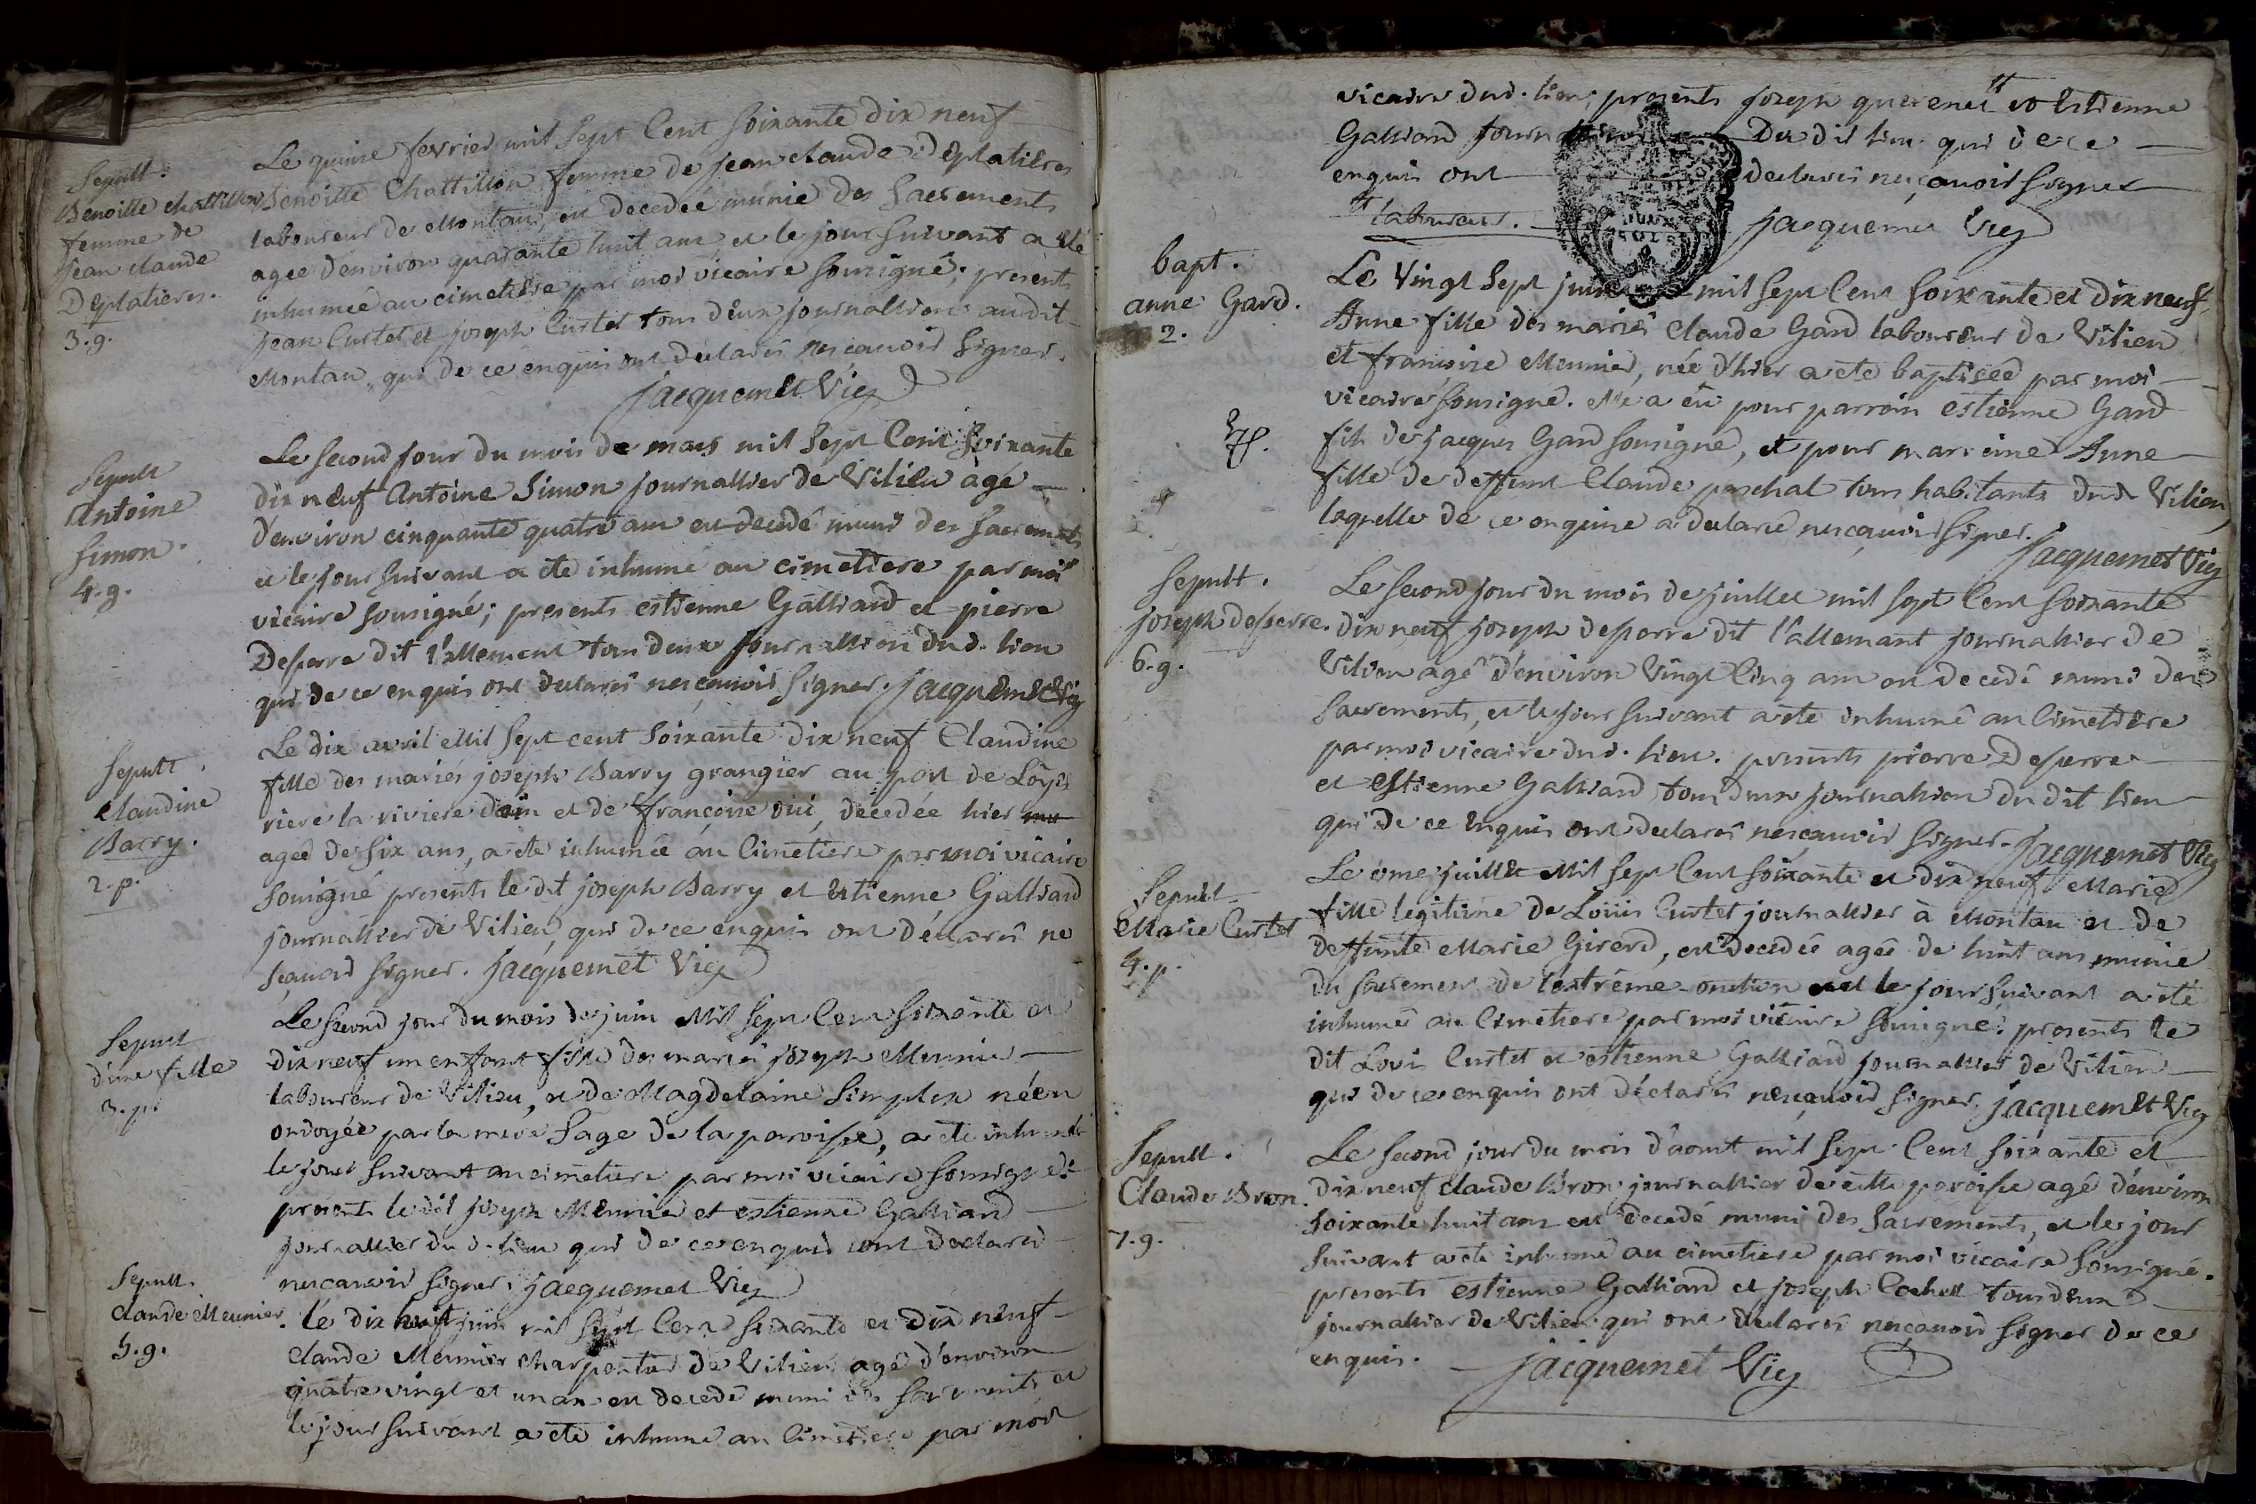 Sepult.
Benoitte chattillon
femme de
jean claude
Deplatieres.
3.g.
Le quinze fevrier mil sept Cent soixante dix neuf
Benoitte Chattillon femme de jean claude Deplatieres
laboureur de Montau, est decedée munie des sacrements
agée d'environ quarante huit ans et le jour suivant a été
inhumée au cimetiere par moi vicaire sousigné; presents
jean Curtet et joseph Curtet tous deux journalliers audit
Montau, qui de ce enquis ont declarés nescavoir signer.
jacquemet Vic
Sepult
Antoine
Simon.
4.g.
Le second jour du mois de mars mil sept Cent soixante
dix neuf Antoine Simon journallier de Vilieu agé
d'environ cinquante quatre ans est decedé muni des sacrements
et le jour suivant a ete inhumé au cimetiere par moi
vicaire sousigné; presents estienne Galliard et pierre
Deserre dit l'allement tous deux journalliers dud. lieu
qui de ce enquis ont declarés nescavoir signer. jacquemet Vic
Sepult.
Claudine
Barry.
2.p.
Le dix avril Mil sept cent soixante dix neuf Claudine
fille des mariés joseph Barry grangier au port de Loyes
riere la riviere dain et de françoise , decedée hier
agée de six ans, a ete inhumée au Cimetiere par moi vicaire
sousigné presents le dit joseph Barry et Estienne Galliard
journallier de Vilieu, qui de ce enquis ont déclarés ne
sçavoir signer. jacquemet Vic
Sepult
d'une fille
3.p.
Le second jour du mois de juin Mil sept Cent soixante et
dix neuf un enfant fille des mariés joseph Meunier
laboureur de Vilieu, et de Magdelaine Simplex née et
ondoyée par la mere sage de la paroisse, a ete inhumée
le jour suivant au cimetiere par moi vicaire sousigné
presents le dit joseph Meunier et estienne Galliard
journallier du d. lieu qui de ce enquis ont declarés
nescavoir signer. jacquemet Vic
Sepult.
claude Meunier.
5.g.
le dix huit juin mil sept Cent soixante et dix neuf
claude Meunier charpentier de Vilieu agé d'environ
quatre vingt et un an est decedé muni des sacrements et
le jour suivant a ete inhumé au Cimetiere par moi
vicaire dud. lieu; presents joseph et Estienne
Galliard Du dit lieu qui de ce
enquis ont declarés nesçavoir signer
laboureur. jacquemet Vic
bapt.
anne Gard.
2.
Le Vingt sept juin mil sept Cent soixante et dix neuf,
Anne fille des mariés Claude Gard laboureur de Vilieu
et françoise Meunier, née d'hier a ete baptisée par moi
vicaire sousigné. elle a eu pour parrain estienne Gard
fils de jacques Gard sousigné, et pour marreine Anne
fille de deffunt Claude paschal tous habitants dud Vilieu,
laquelle de ce enquise a declaré nescavoir signer.
jacquemet Vic
Sepult.
joseph deserre.
6.g.
Le second jour du mois de juillet mil sept Cent soixante
dix neuf joseph deserre dit l'allemant journallier de
Vilieu agé d'environ Vingt Cinq ans est decedé muni des
sacrements, et le jour suivant a ete inhumé au Cimetiere
par moi vicaire dud. lieu. presents pierre Deserre
et estienne Galliard tous deux journalliers du dit lieu
qui de ce enquis ont declarés nescavoir signer. jacquemet Vic
Sepult
Marie Curtet
4.p.
Le onze juillet Mil sept Cent soixante et dix neuf Marie
fille legitime de Loüis Curtet journallier à Montau et de
deffunte Marie Girerd, est decedée agée de huit ans munie
du sacrement de l'extrême-onction et le jour suivant a ete
inhumée au Cimetiere par moi vicaire sousigné: presents le
dit Louis Curtet et estienne Galliard journallier de Vilieu
qui de ce enquis ont déclarés nesçavoir signer. jacquemet Vic
Sepult.
Claude Bron.
7.g.
Le second jour du mois d'aout mil sept Cent soixante et
dix neuf claude Bron journallier de cette paroisse agé d'environ
soixante huit ans est decedé muni des sacrements, et le jour
suivant a ete inhumé au cimetiere par moi vicaire sousigné.
presents estienne Galliard et joseph tous deux
journallier de Vilieu qui ont declarés nesçavoir signer de ce
enquis. jacquemet Vic